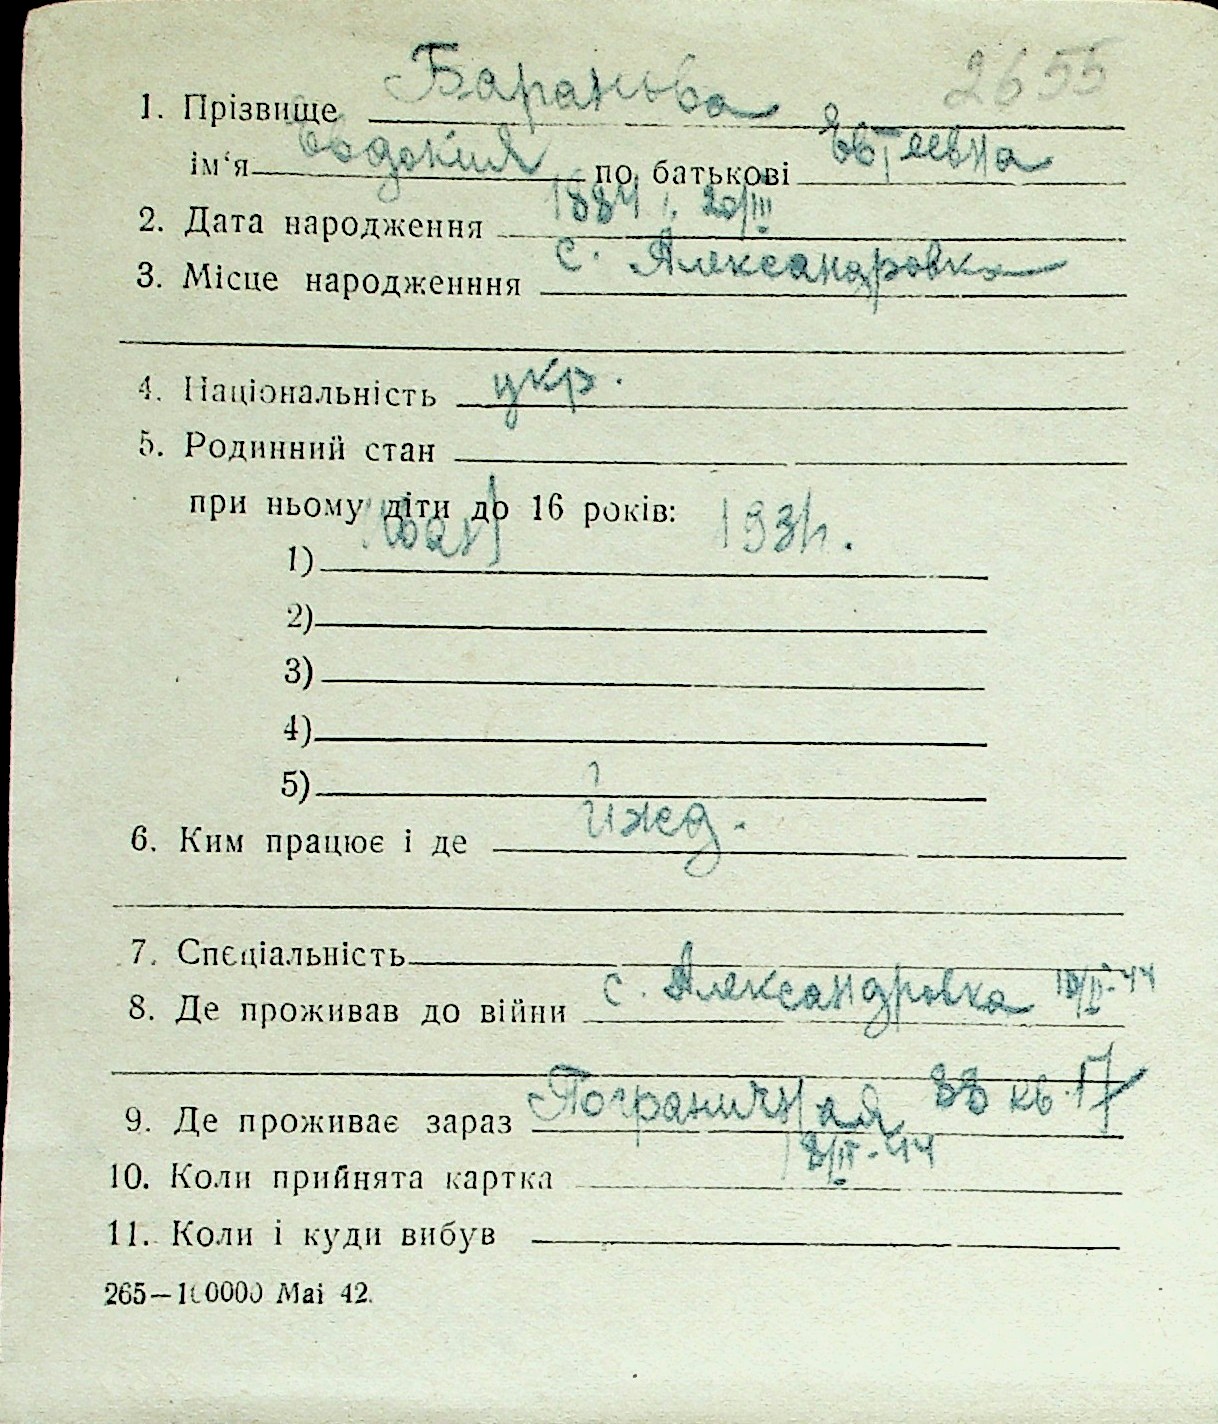 2655
1. Прізвище Баранова
ім‘я Евдокия по батькові
2. Дата народження 1884 г. 20/III
3. Місце народженння с. Александровка
4. Національність укр.
5. Родинний стан
при ньому діти до 16 років:
1) 1931.
2)
3)
4)
5)
6. Ким працює і де ижд.
7. Спєціальність
8. Де проживав до війни с. Александровка
9. Де проживає зараз Пограничная 33 кв. 17
10. Коли прийнята картка 8/II-44
11. Коли і куди вибув
265—100000 Mai 42.